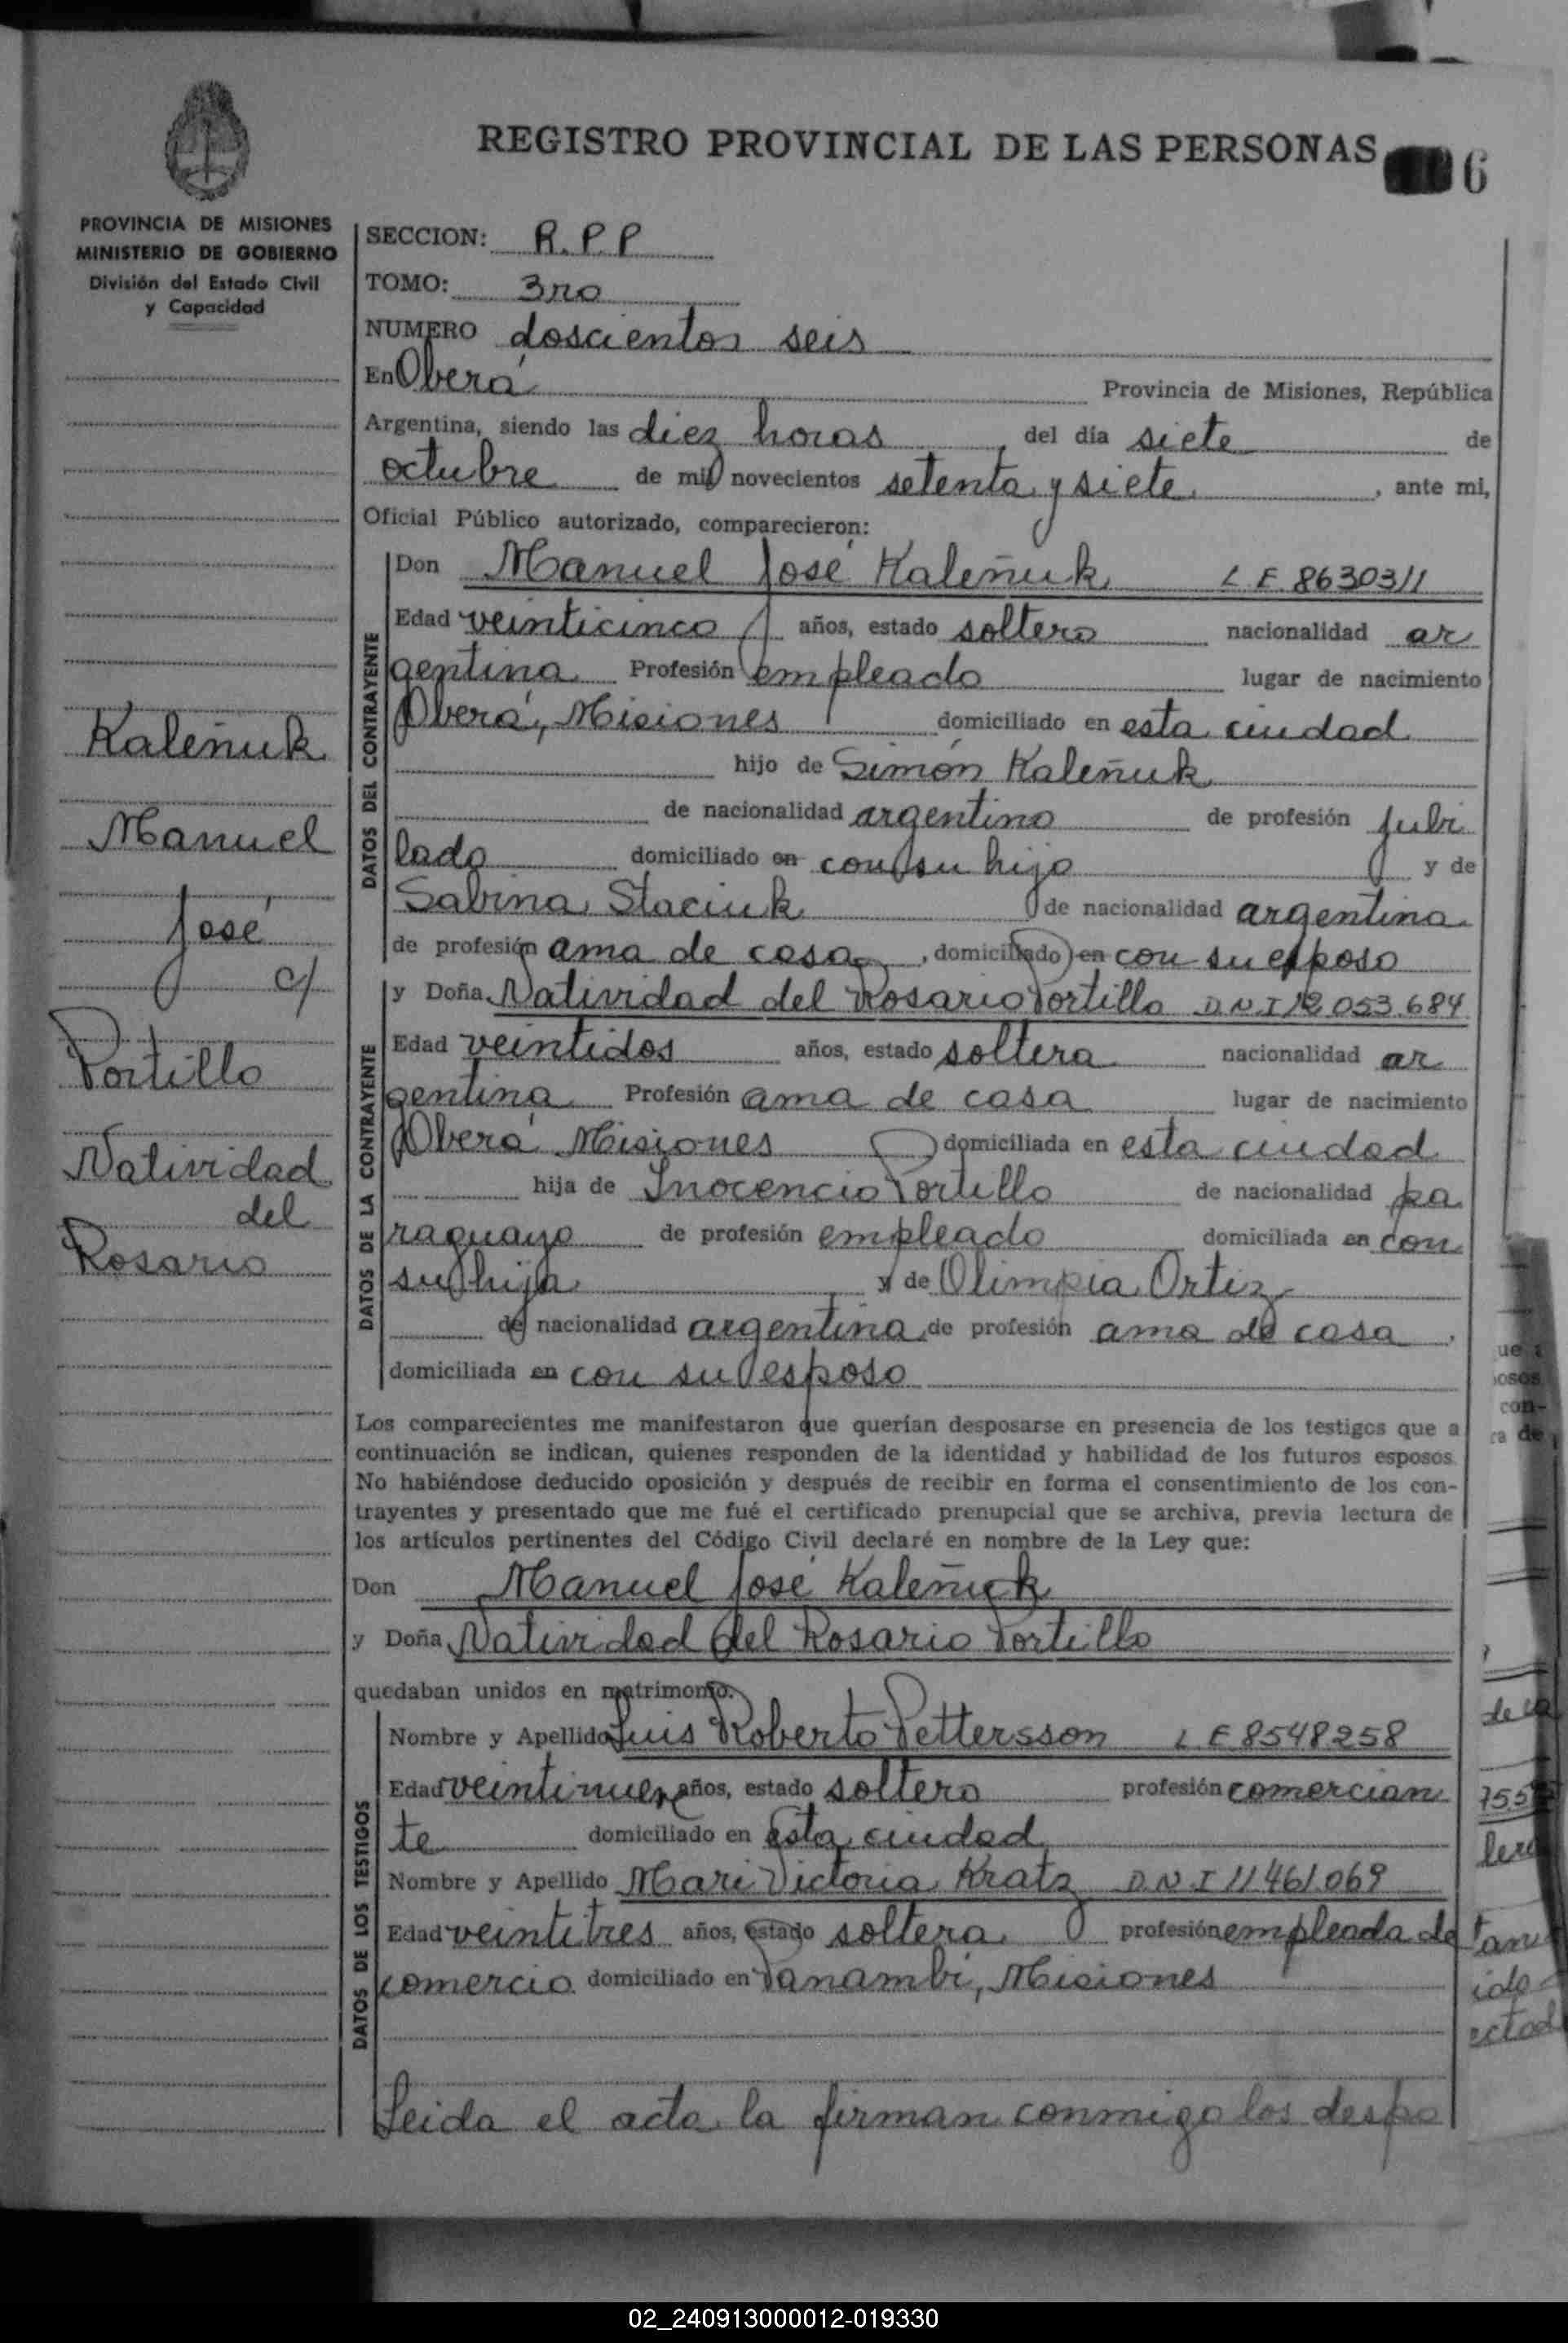 REGISTRO PROVINCIAL DE LAS PERSONAS 6
PROVINCIA DE MISIONES
MINISTERIO DE GOBIERNO
División del Estado Civil
y Capacidad
Kaleñuk
Manuel
José
c/
Portillo
Natividad
del
Rosario
SECCION: R.P.P
TOMO: 3ro
NUMERO doscientos seis
En Oberá Provincia de Misiones, República
Argentina, siendo las diez horas, del día siete de
octubre de mil novecientos setenta y siete, ante mi,
Oficial Público autorizado, comparecieron:
DATOS DEL CONTRAYENTE
Don Manuel José Kaleñuk L E 8630311
Edad veinticinco años, estado soltero nacionalidad ar
gentina Profesión empleado lugar de nacimiento
Oberá, Misiones domiciliado en esta ciudad
hijo de Simón Kaleñuk
de nacionalidad argentino de profesión jubi
lado domiciliado en con su hijo y de
Sabina Staciuk de nacionalidad argentina
de profesión ama de casa, domiciliado en con su esposo
DATOS DE LA CONTRAYENTE
y Doña Natividad del Rosario Portillo D.N.I 12.053.684
Edad veintidos años, estado soltera nacionalidad ar
gentina Profesión ama de casa lugar de nacimiento
Oberá Misiones domiciliada en esta ciudad
hija de Inocencio Portillo de nacionalidad pa
raguayo de profesión empleado domiciliada en con
su hija y de Olimpia Ortiz
de nacionalidad argentina de profesión ama de casa,
domiciliada en con su esposo
Los comparecientes me manifestaron que querían desposarse en presencia de los testigos que a
continuación se indican, quienes responden de la identidad y habilidad de los futuros esposos.
No habiéndose deducido oposición y después de recibir en forma el consentimiento de los con-
trayentes y presentado que me fué el certificado prenupcial que se archiva, previa lectura de
los artículos pertinentes del Código Civil declaré en nombre de la Ley que:
Don Manuel José Kaleñuk
y Doña Natividad del Rosario Portillo
quedaban unidos en matrimonio.
DATOS DE LOS TESTIGOS
Nombre y Apellido Luis Roberto Pettersson L E 8548258
Edad veintinueve años, estado soltero profesión comercian
te domiciliado en esta ciudad
Nombre y Apellido Mari Victoria Kratz D.N.I 11.461.069
Edad veintitres años, estado soltera profesión empleada de
comercio domiciliado en Panambi, Misiones
Leida el acta la firman conmigo los despo
02_240913000012-019330